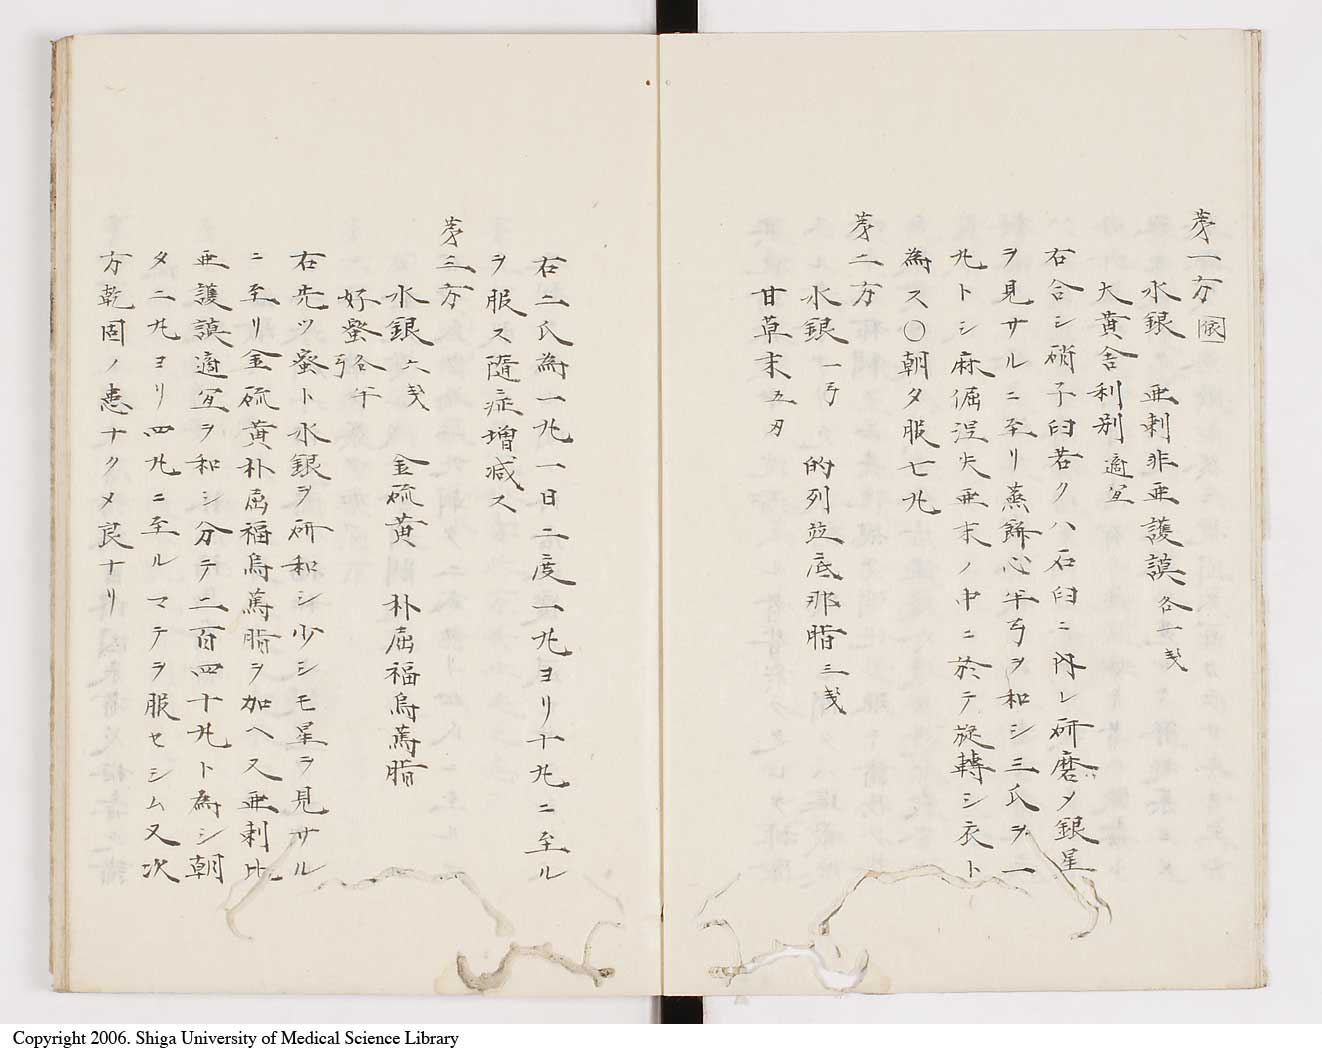 第一方
水銀 亜剌非亜護謨各一戔
大黄舎利別適宜
右合シ硝子臼若クハ石臼ニ内レ研磨シ銀星
ヲ見サルニ至リ蒸餅心半弓ヲ和シ三氏ヲ一
丸トシ麻倔涅失亜末ノ中ニ於テ旋轉シ衣ト
為ス〇朝夕服七丸
第二方
水銀 一弓 的列並底那脂三戔
甘草末五刃
右二氏為一丸一日二度一丸ヨリ十丸ニ至ル
ヲ服ス随症増减ス
第三方
水銀六戔 金硫黄 朴屈福烏蔫脂
好蜜各午
右先ツ蜜ト水銀ヲ研和シ少シモ星ラ見サル
ニ至リ金硫黄朴屈福烏蔫脂ヲ加ヘ又亜剌比
亜護謨適宜ヲ和シ分テ二百四十丸ト為シ朝
夕二丸ヨリ四丸ニ至ルマテヲ服セシム又次
方乾固ノ患ナクメ良ナリ
Copyright 2006. Shiga University of Medical Science Library